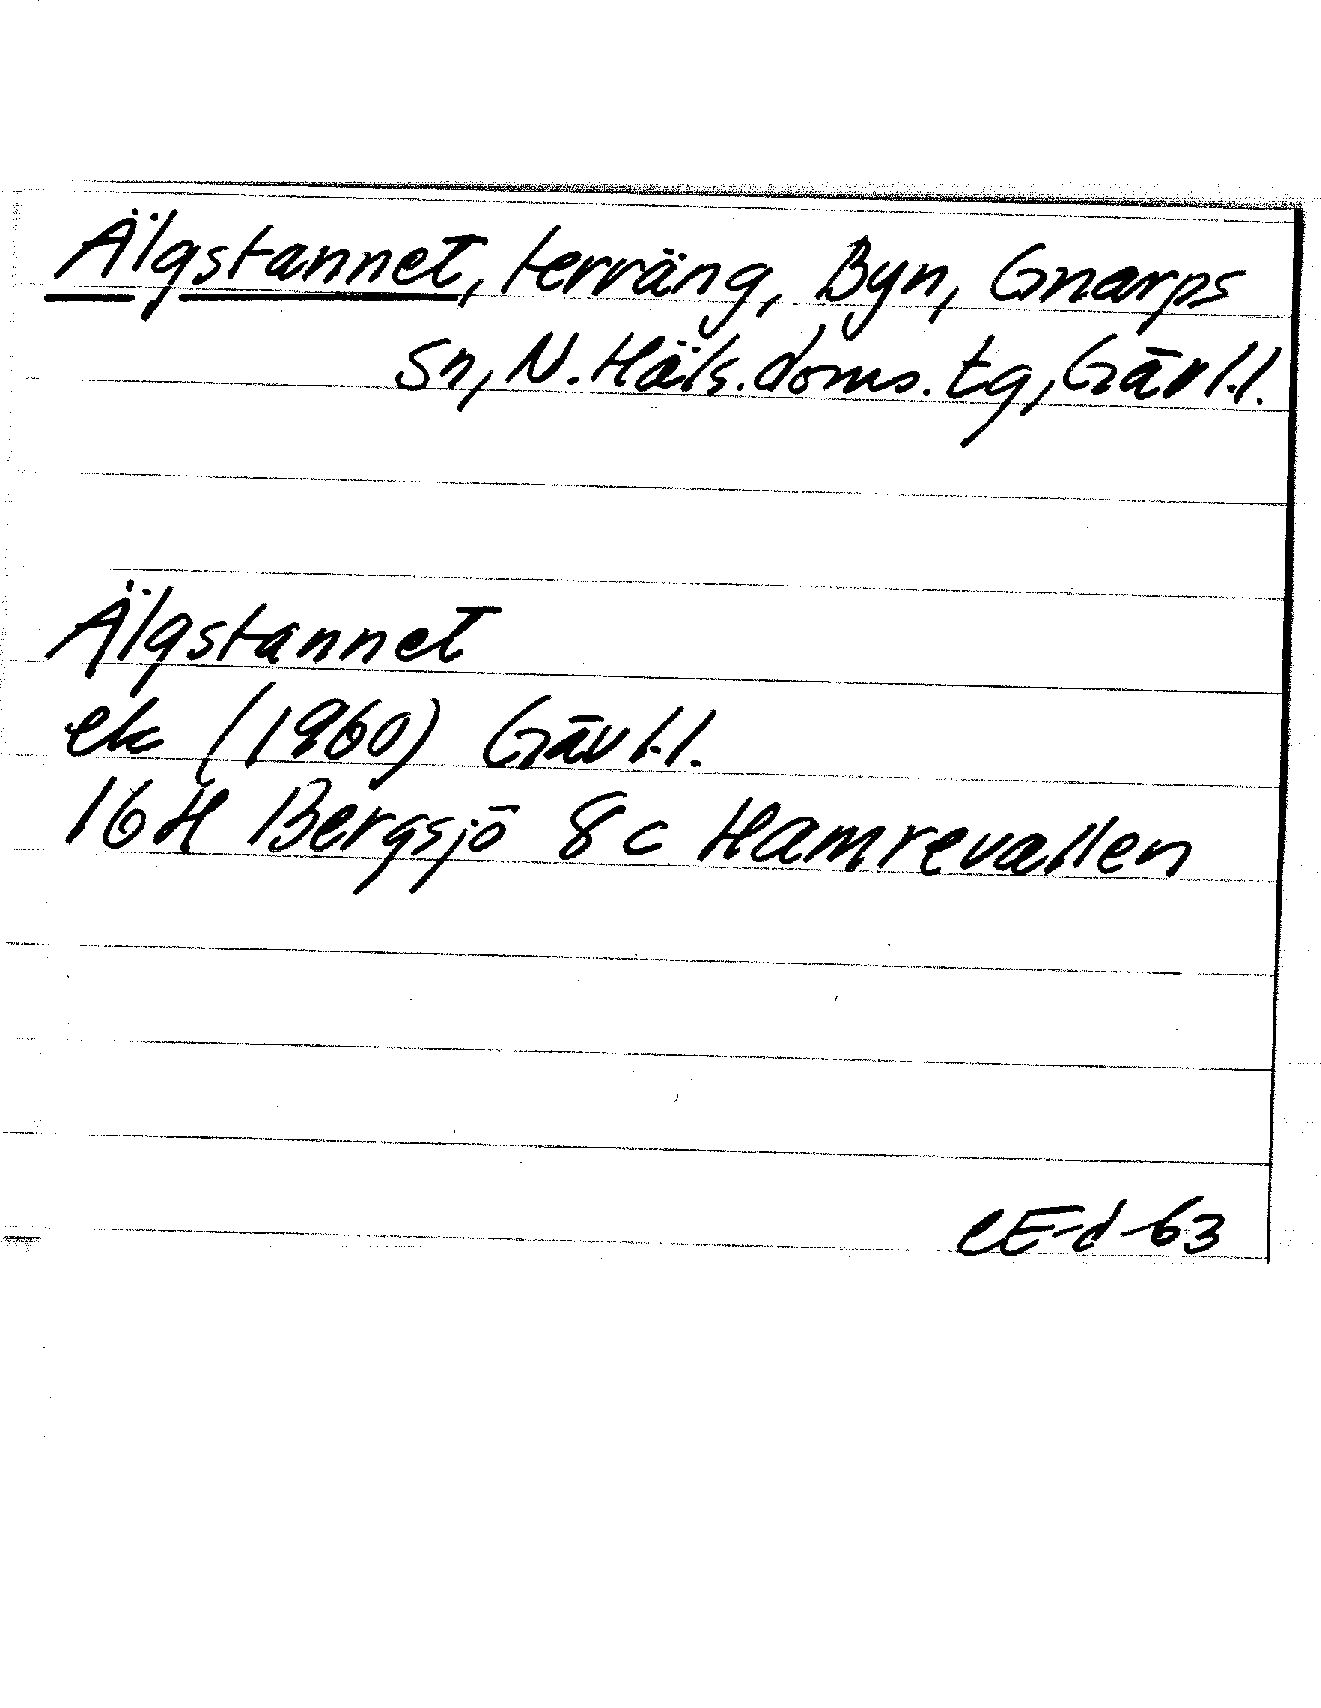 Älgstannet, terräng, Byn, Gnarps
sn, N. Häls. doms. tg, Gävl. l.
Älgstannet
ek (1960) Gävl. l.
16H Bergsjö 8c Hamrevallen
CE-d-63